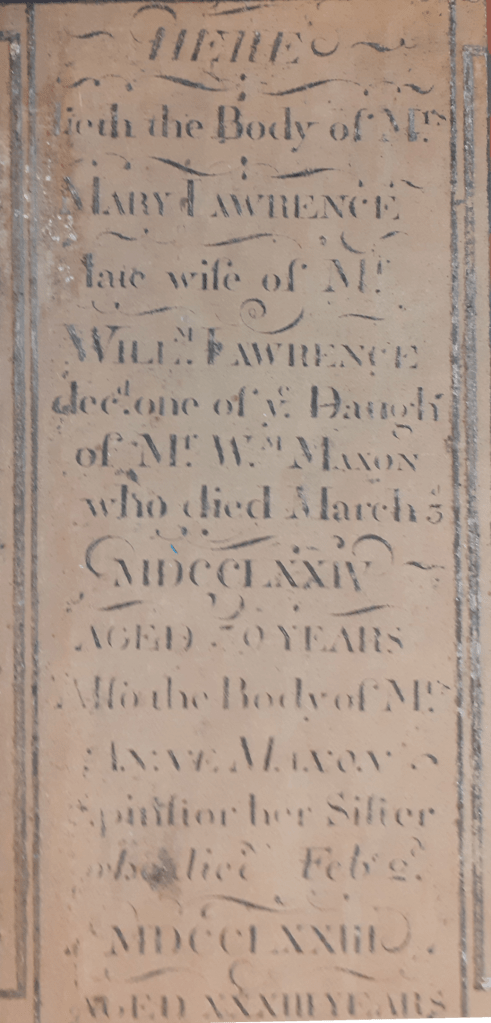 HERE
lieth the Body of Mrs.
MARY LAWRENCE
late wife of Mr
WILLM. LAWRENCE
decd. one of ye. Daughr
of Mr. W.M MAXON
who died March 3d
MDCCLXXIV
AGED 39 YEARS
Also the Body of Mrs.
ANNE MAXON
Spinſtor her Siſter
who died Feby. 2d.
MDCCLXXIII
AGED XXXIII YEARS